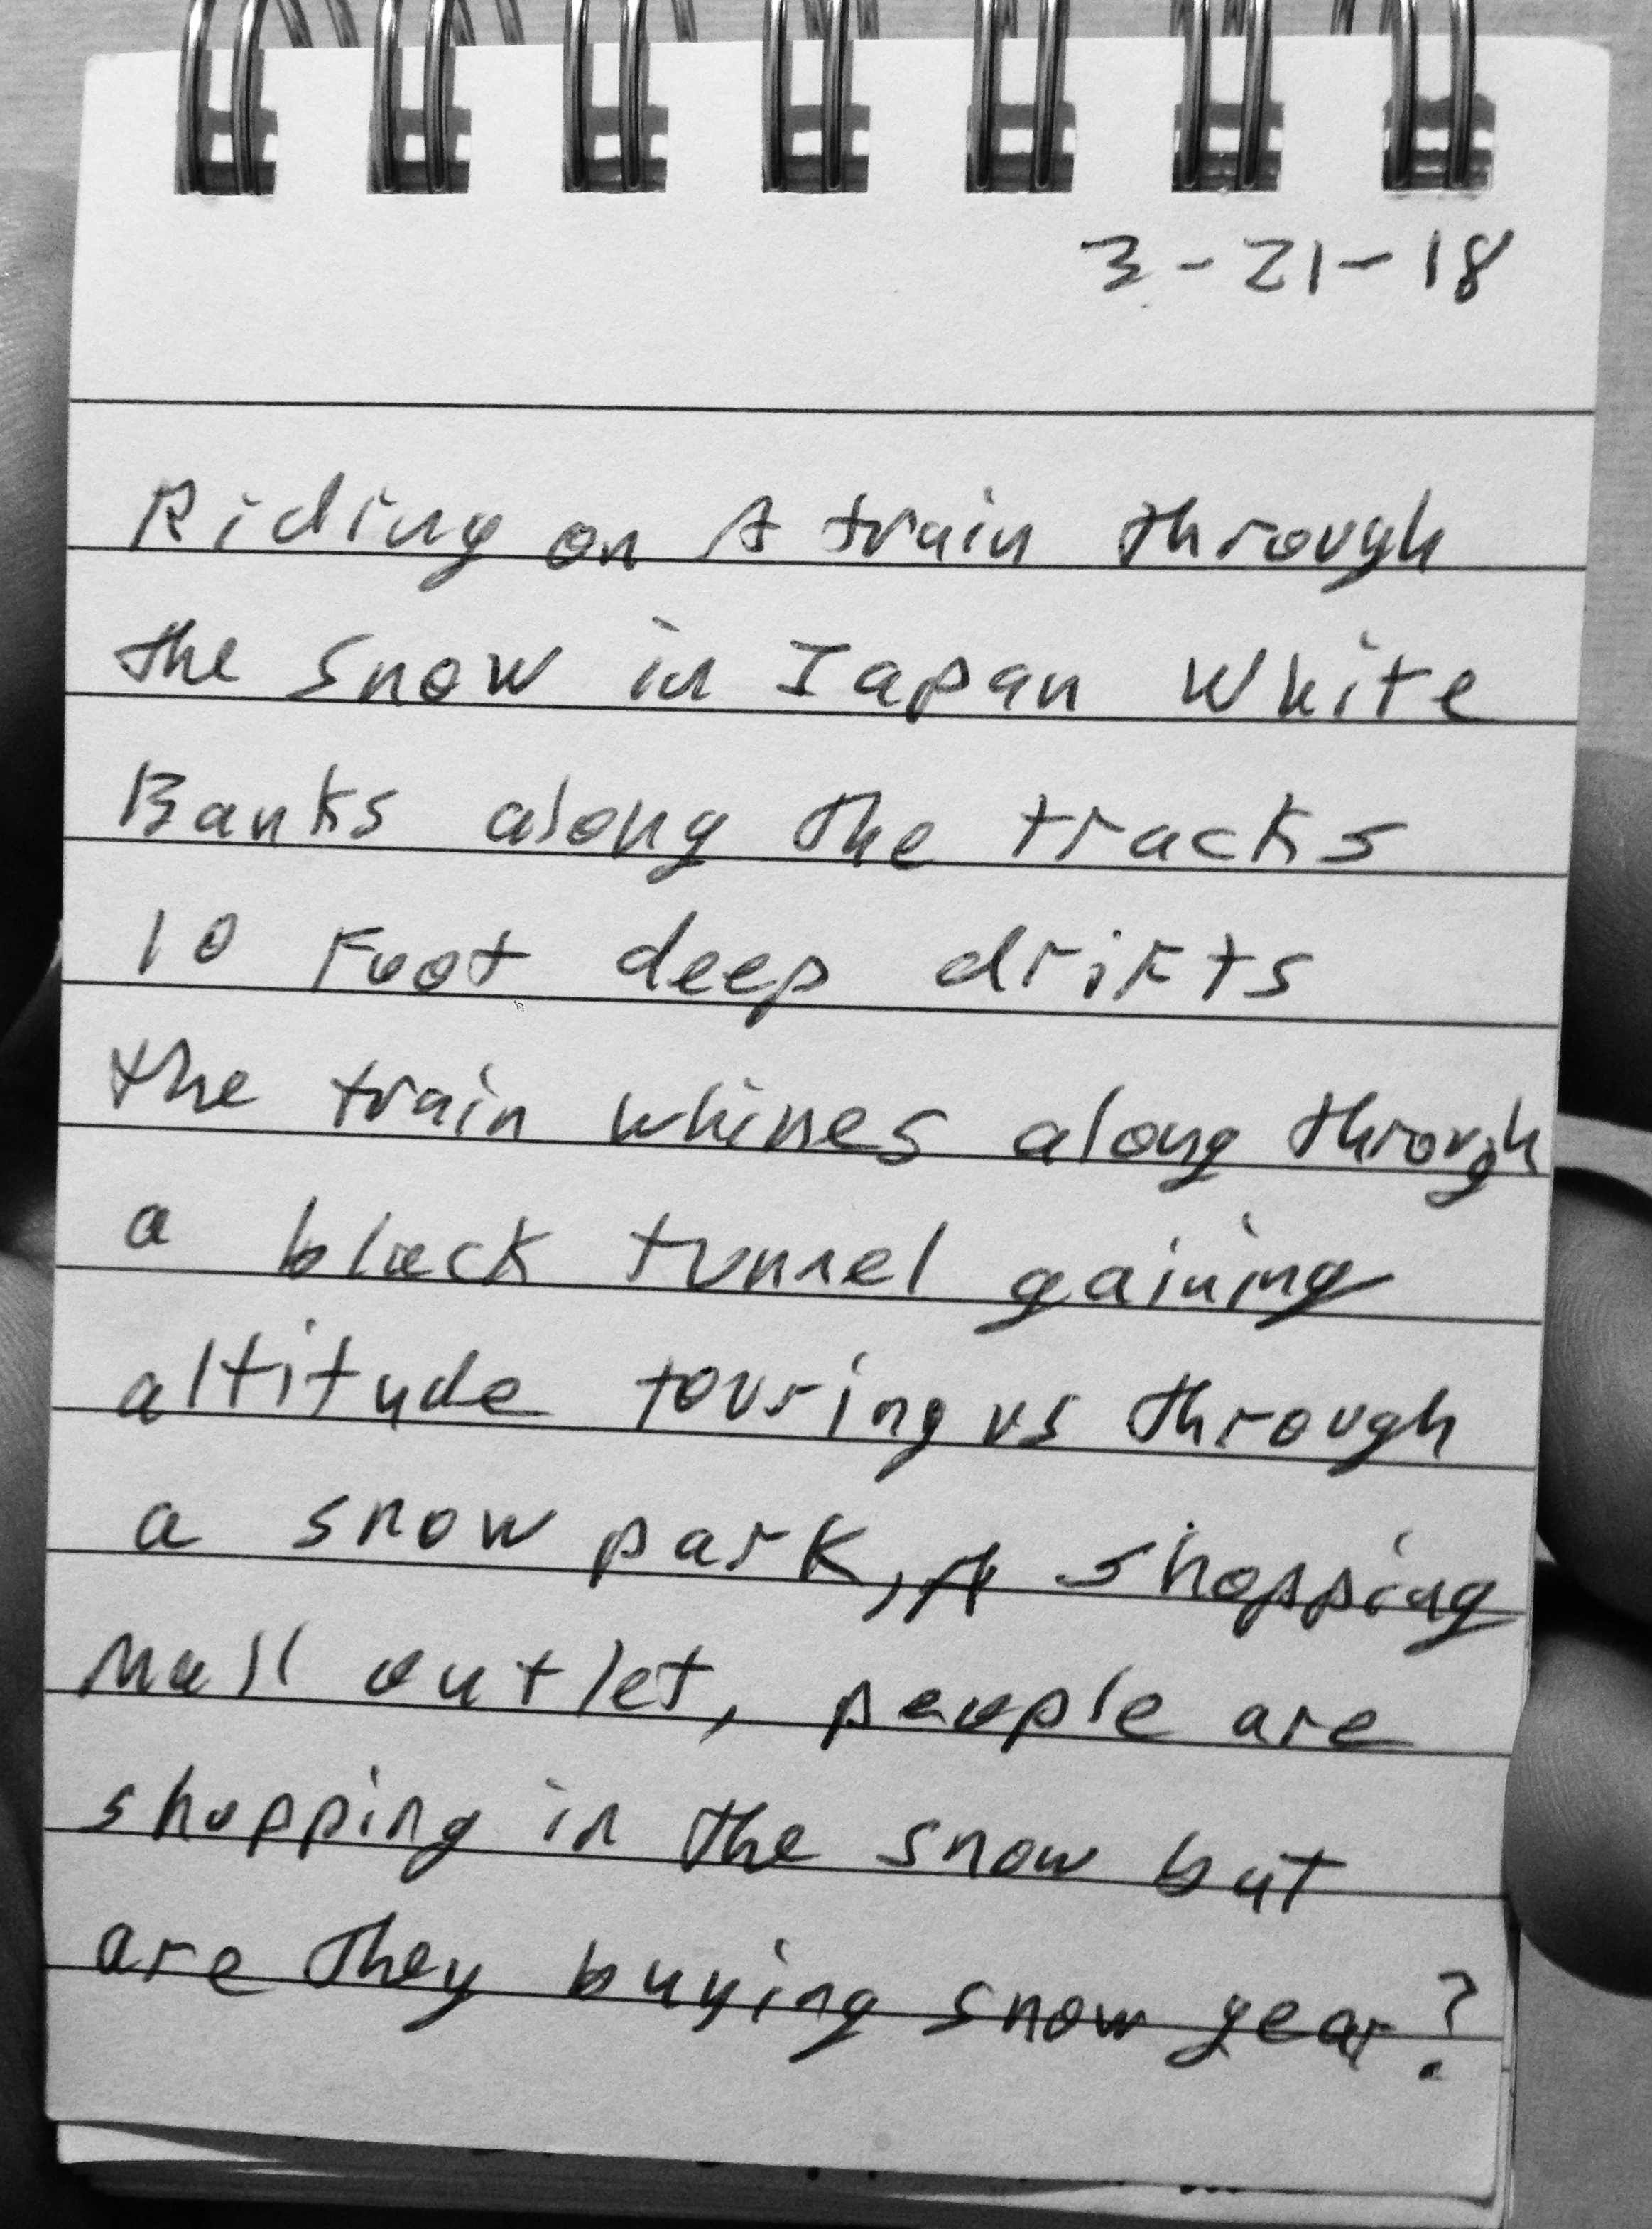 3-21-18
Riding on A train through
the snow in Japan White
Banks along the tracks
10 Foot deep drifts
the train whines along through
a black tunnel gaining
altitude touring us through
a snow park, A shopping
Mall outlet, people are
shopping in the snow but
are they buying snow gear?